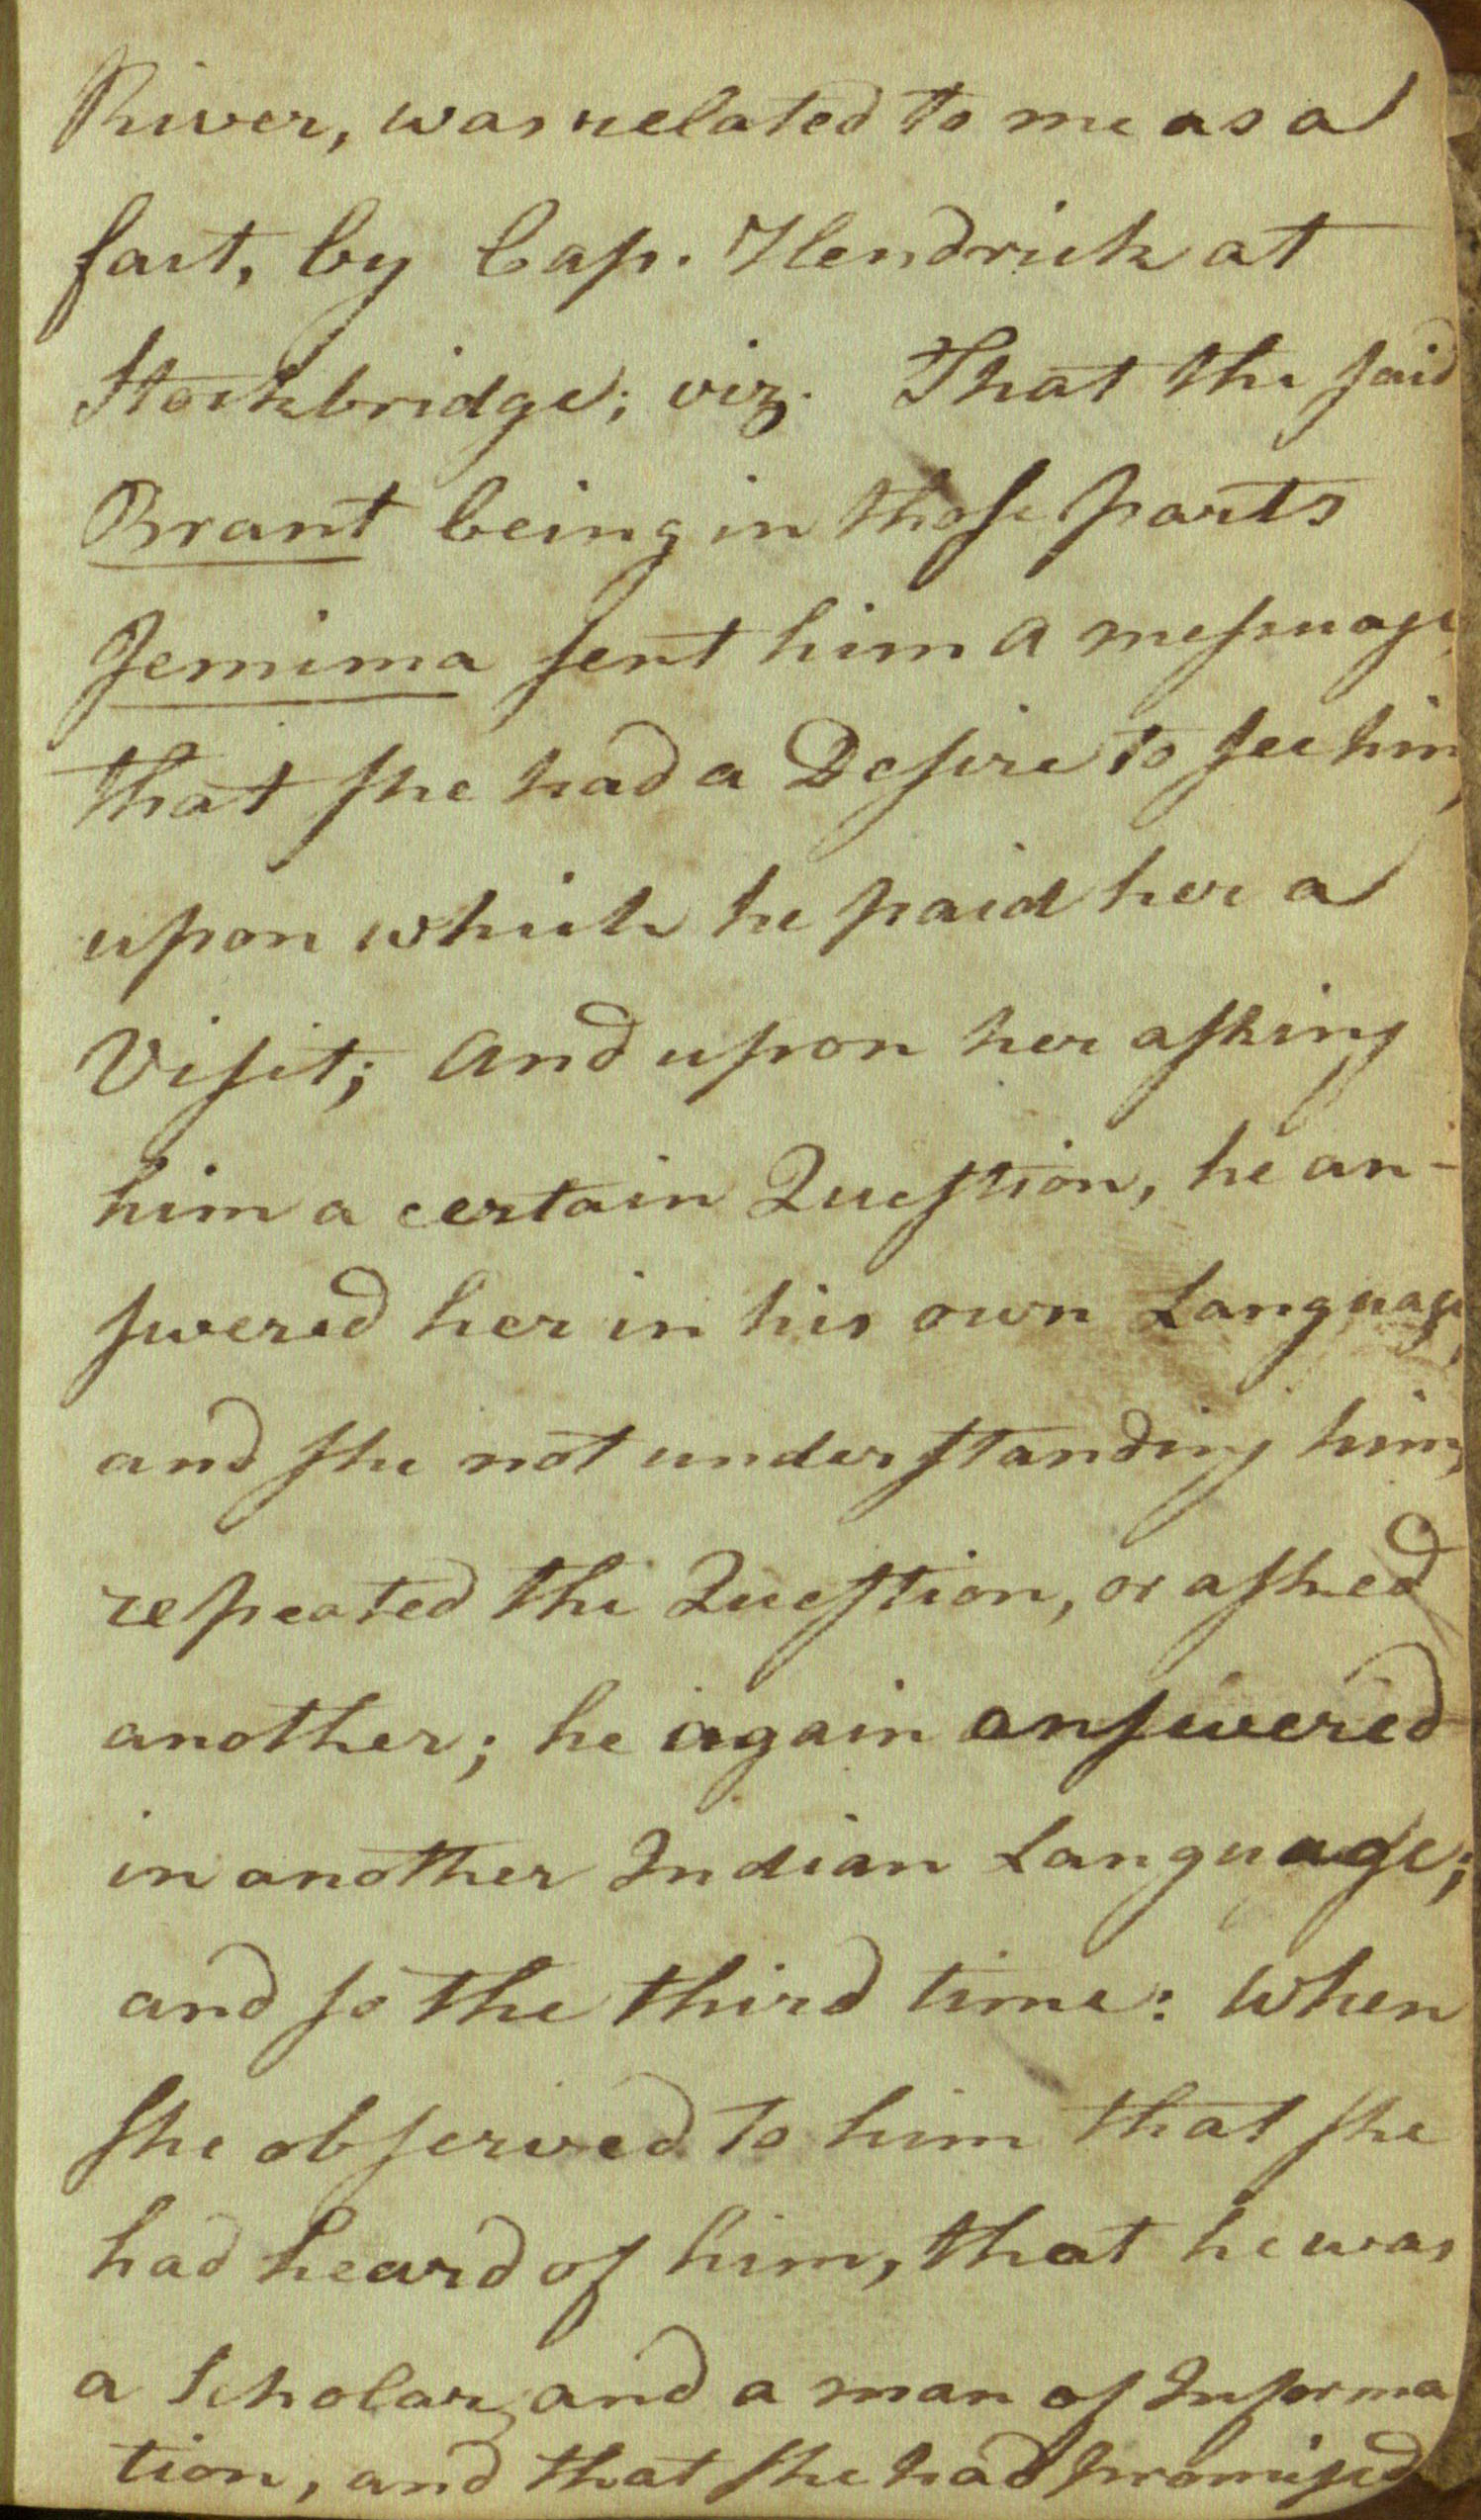 River, was related to me as a
fact, by Cap. Hendrick at
Stockbridge; viz. That the said
Brant being in those parts
Jemima sent him a message,
that she had a Desire to see him,
upon which he paid her a
Visit; And upon her asking
him a certain Question, he an-
swered her in his own Language,
and she not understanding him,
repeated the Question, or asked
another; he again answered
in another Indian Language;
and so the third time: When
she observed to him that she
had heard of him, that he was
a Scholar, and a man of Informa
tion, and that she had promised